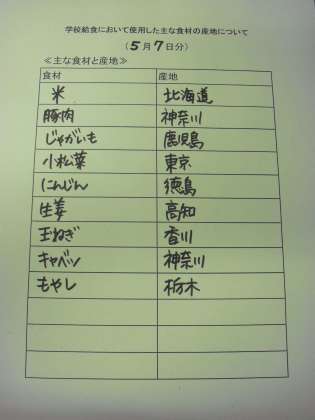 学校給食において使用した主な食材の産地について
(5月7日分)
≪主な食材と産地≫
食材 産地
米 北海道
豚肉 神奈川
じゃがいも 鹿児島
小松菜 東京
にんじん 徳島
生姜 高知
玉ねぎ 香川
キャベツ 神奈川
もやし 栃木